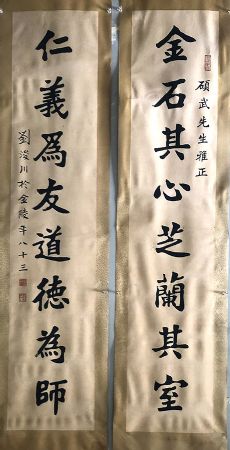 金石其心芝蘭其室
碩武先生雅正
仁義為友道德為師
劉浚川於金陵年八十三